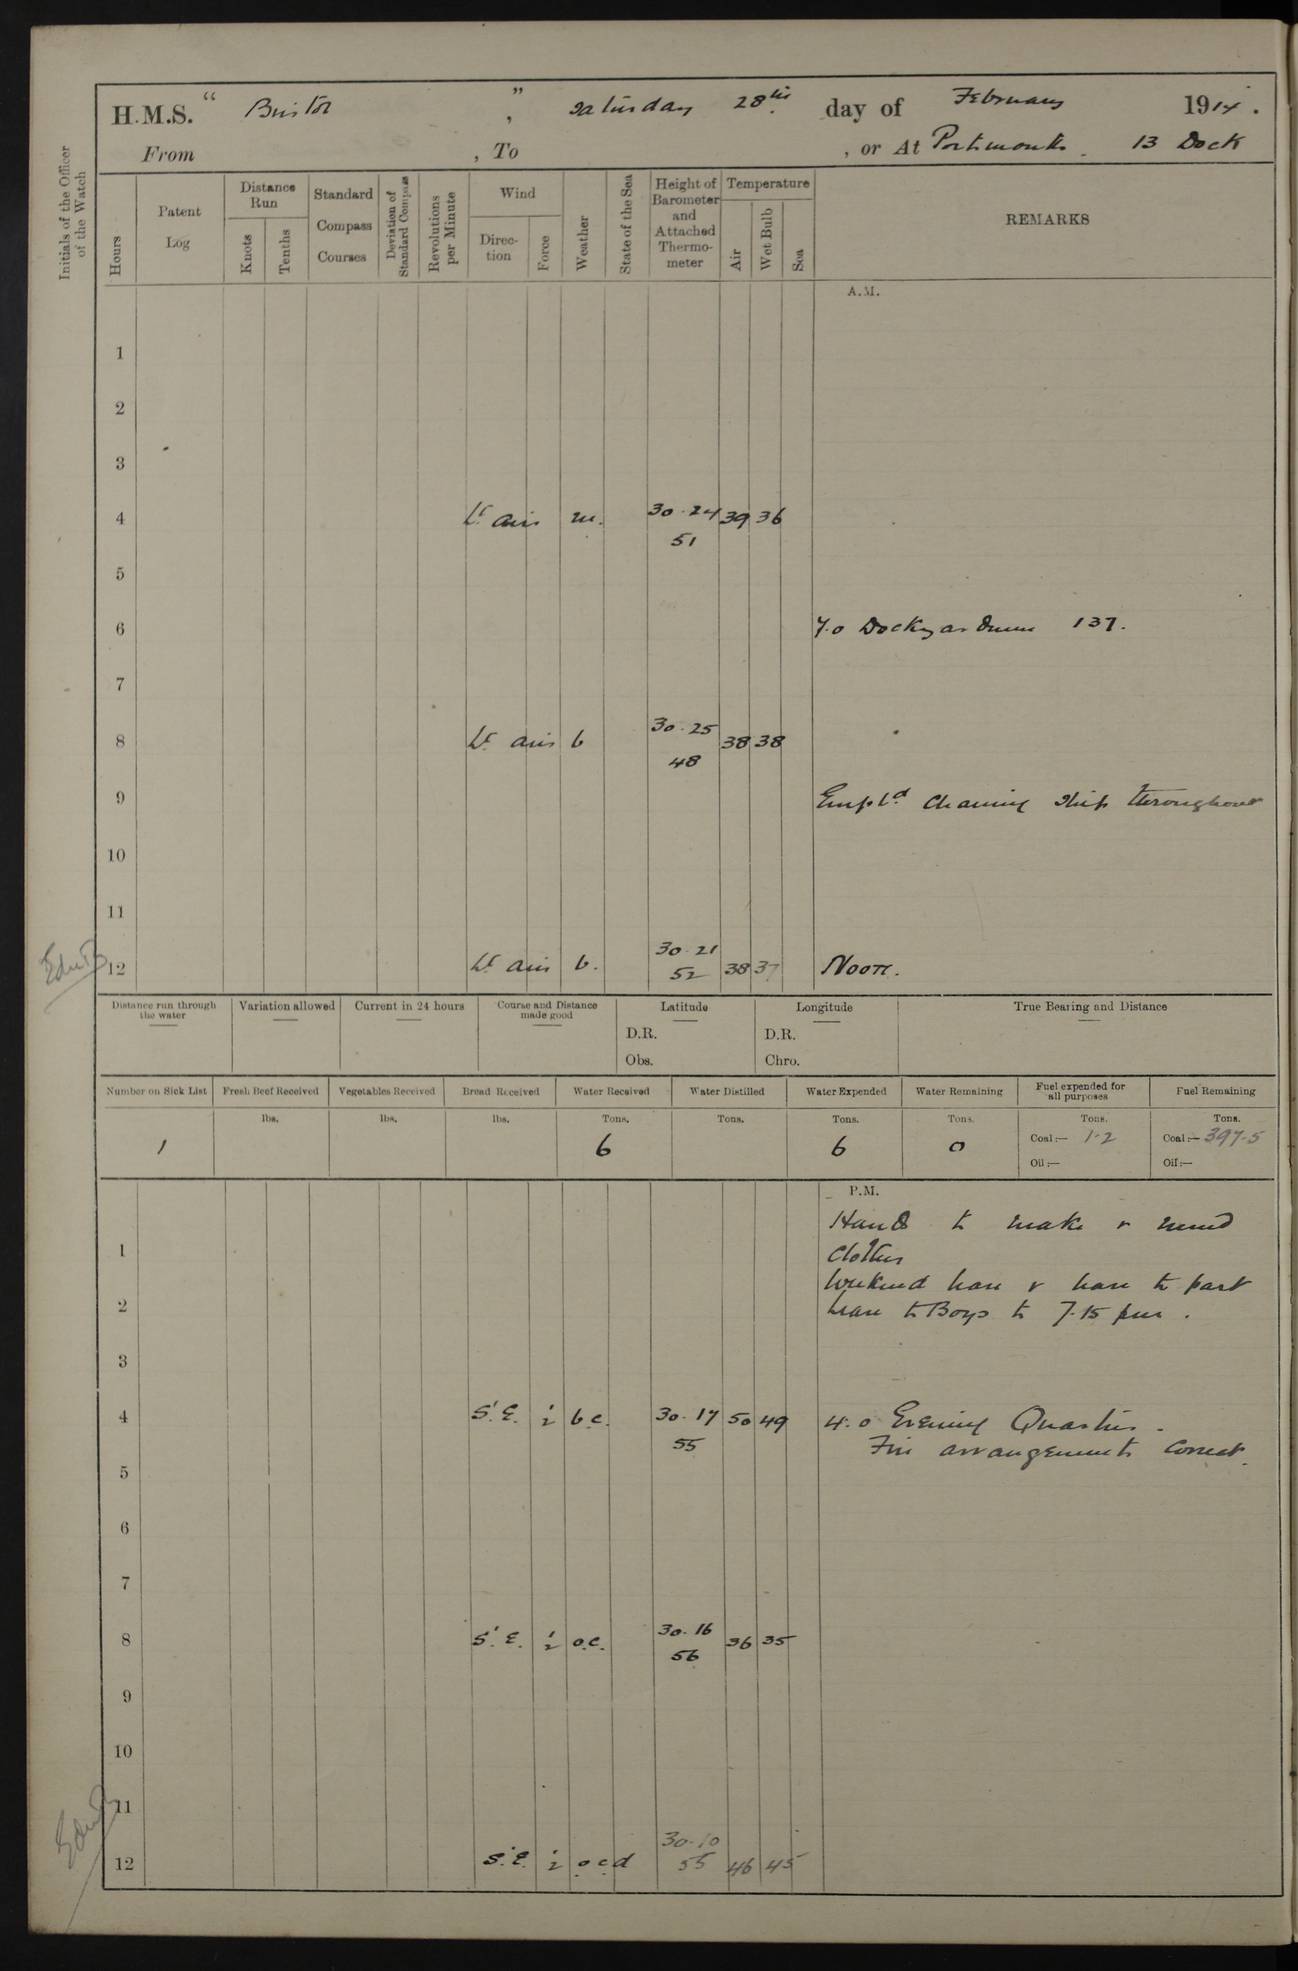 H.M.S. “ Bristol ” , Saturday 28th day of February 1914 .
From , To , or At Portsmouth . 13 Dock
Initials of the Officer of the Watch
Hours
Patent Log
Distance Run
Knots
Tenths
Standard Compass Courses
Deviation of Standard Compass
Revolutions per Minute
Wind
Direction
Force
Weather
State of the Sea
Height of Barometer and Attached Thermometer
Temperature
Air
Wet Bulb
Sea
REMARKS
A.M.
1
2
3
4 Lt airs m. 30.24 39 36
51
5
6 7.0 Dockyardmen 137.
7
8 Lt airs b 30.25 38 38
48
9 Empld cleaning ship throughout
10
11
12 Lt airs b. 30.21 38 37 Noon.
52
Distance run through the water
Variation allowed
Current in 24 hours
Course and Distance made good
Latitude
D.R.
Obs.
Longitude
D.R.
Chro.
True Bearing and Distance
Number on Sick List
Fresh Beef Received
Vegetables Received
Bread Received
Water Received
Water Distilled
Water Expended
Water Remaining
Fuel expended for all purposes
Fuel Remaining
lbs. lbs. lbs. Tons. Tons. Tons. Tons. Tons. Tons.
1 6 6 0 Coal :— 1.2 Coal :— 397.5
Oil :— Oil :—
P.M.
Hands to make & mend
1 clothes
Weekend leave & leave to part
2 Leave to Boys to 7.15 pm .
3
4 S.E. 1/2 b.c. 30.17 50 49 4.0 Evening Quarters .
55 Fire arrangements correct.
5
6
7
8 S.E. 1/2 o.c. 30.16 36 35
56
9
10
11
12 S.E. 1/2 o.c.d 30.10 46 45
55